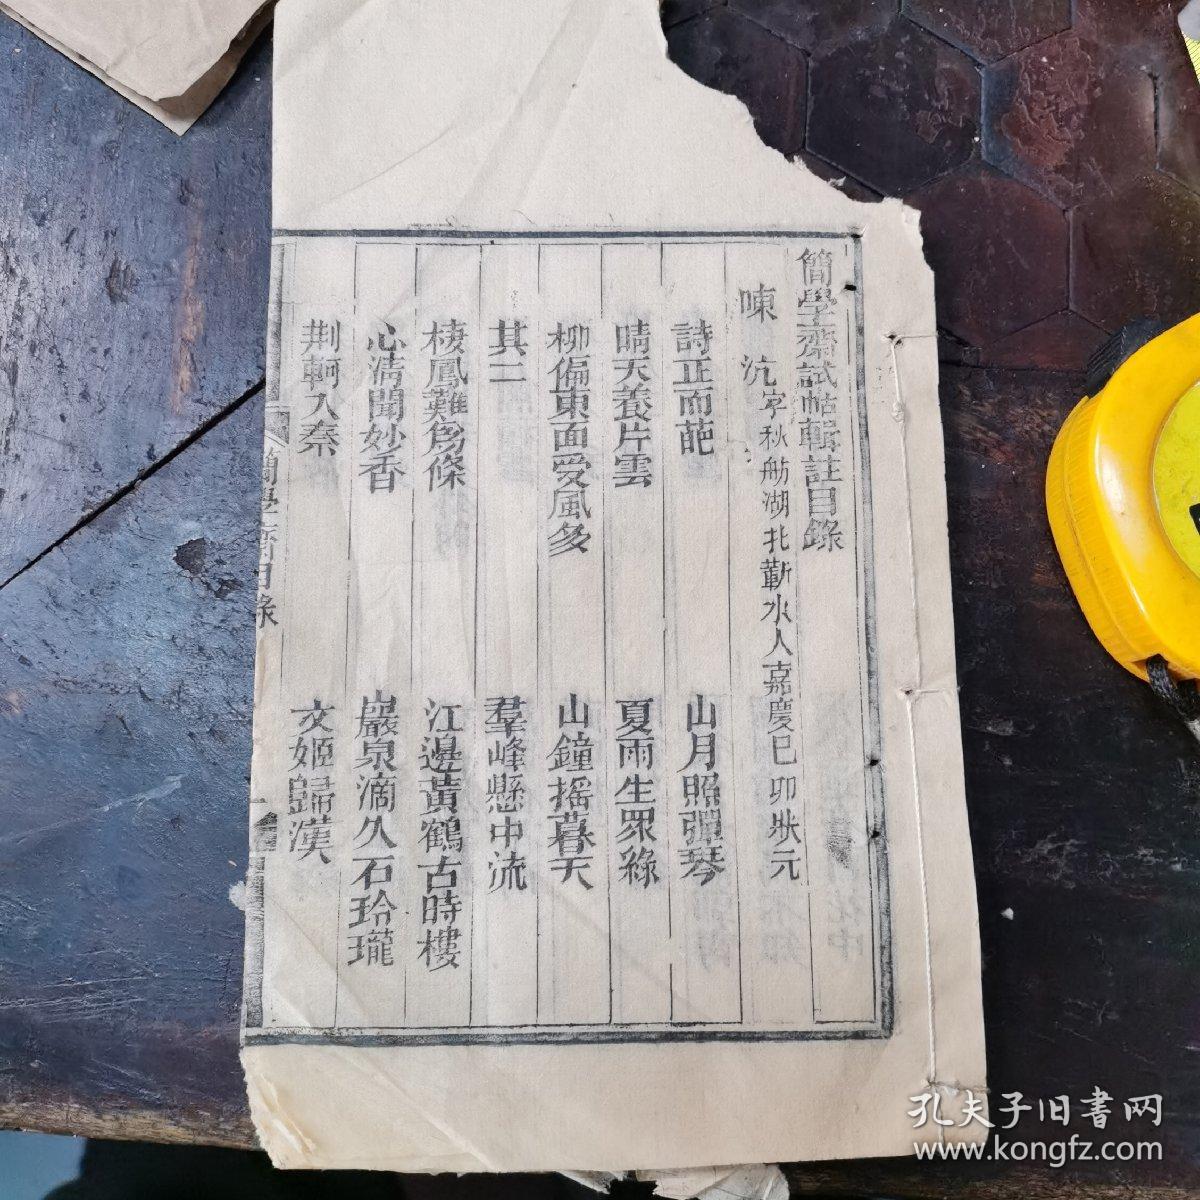 簡學齋試帖輯註目錄
陳沆字秋舫湖北蘄水人嘉慶己卯狀元
詩正而葩
山月照彈琴
晴天養片雲
夏雨生眾綠
柳偏東面受風多
山鐘搖暮天
其二
羣峰懸中流
棲鳳難為條
江邊黃鶴古時樓
心清聞妙香
巖泉滴久石玲瓏
荆軻入秦
文姬歸漢
簡學齋目錄
一
孔夫子旧書网
www.kongfz.com